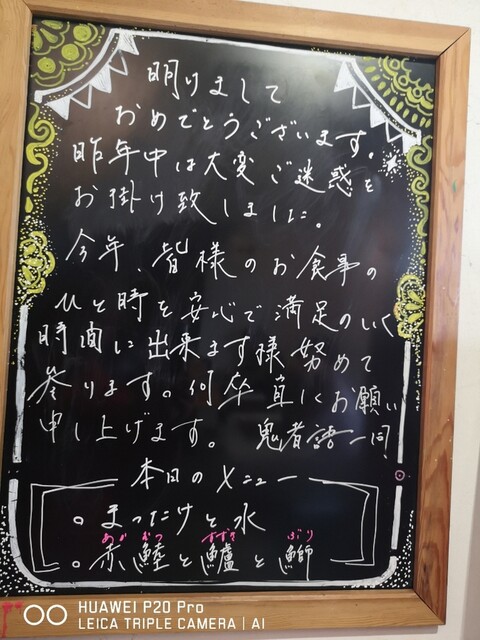 明けまして
おめでとうございます。
昨年中は大変ご迷惑を
お掛け致しました。
今年、皆様のお食事の
ひと時を安心で満足のいく
時間に出来ます様努めて
参ります。何卒宜しくお願い
申し上げます。 鬼者語一同
本日のメニュー
。まったけと水
あか むつ すずき ぶり
。赤鯥と鱸と鰤
HUAWEI P20 Pro
LEICA TRIPLE CAMERA | AI